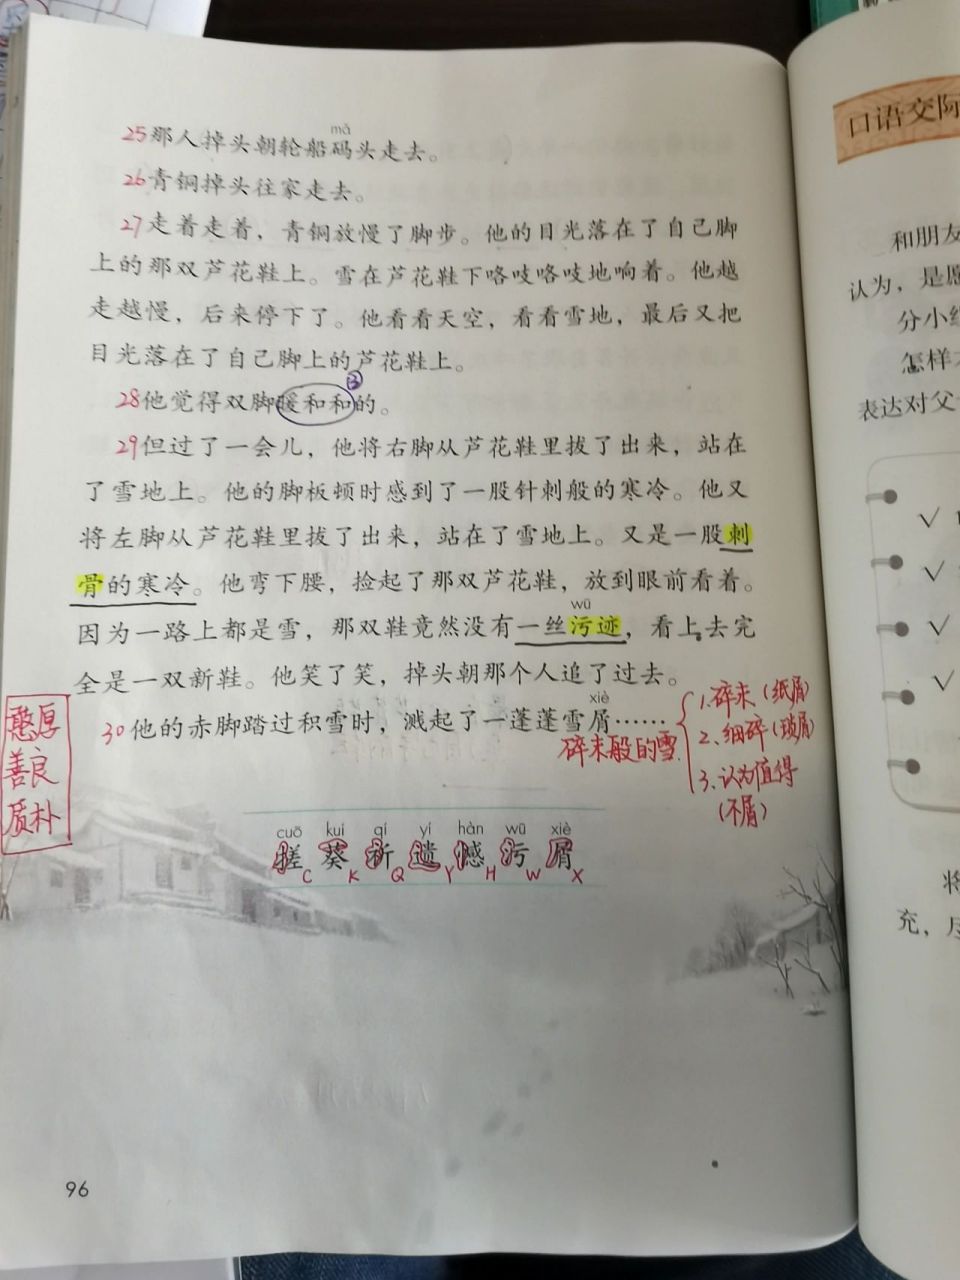 mǎ
25那人掉头朝轮船码头走去。
26青铜掉头往家走去。
27走着走着，青铜放慢了脚步。他的目光落在了自己脚
上的那双芦花鞋上。雪在芦花鞋下咯吱咯吱地响着。他越
走越慢，后来停下了。他看看天空，看看雪地，最后又把
目光落在了自己脚上的芦花鞋上。
③
28他觉得双脚暖和和的。
29但过了一会儿，他将右脚从芦花鞋里拔了出来，站在
了雪地上。他的脚板顿时感到了一股针刺般的寒冷。他又
将左脚从芦花鞋里拔了出来，站在了雪地上。又是一股刺
骨的寒冷。他弯下腰，捡起了那双芦花鞋，放到眼前看着。
wū
因为一路上都是雪，那双鞋竟然没有一丝污迹，看上去完
全是一双新鞋。他笑了笑，掉头朝那个人追了过去。
xiè
30他的赤脚踏过积雪时，溅起了一蓬蓬雪屑……
碎末般的雪
1.碎末（纸屑）
2.细碎（琐屑）
3.认为值得
（不屑）
憨厚
善良
质朴
cuō kuí qí yí hàn wū xiè
搓 葵 祈 遗 憾 污 屑
C K Q Y H W X
96
口语交际
和朋友
认为，是愿
分小组
怎样
表达对父
√
√
√
√
将
充，